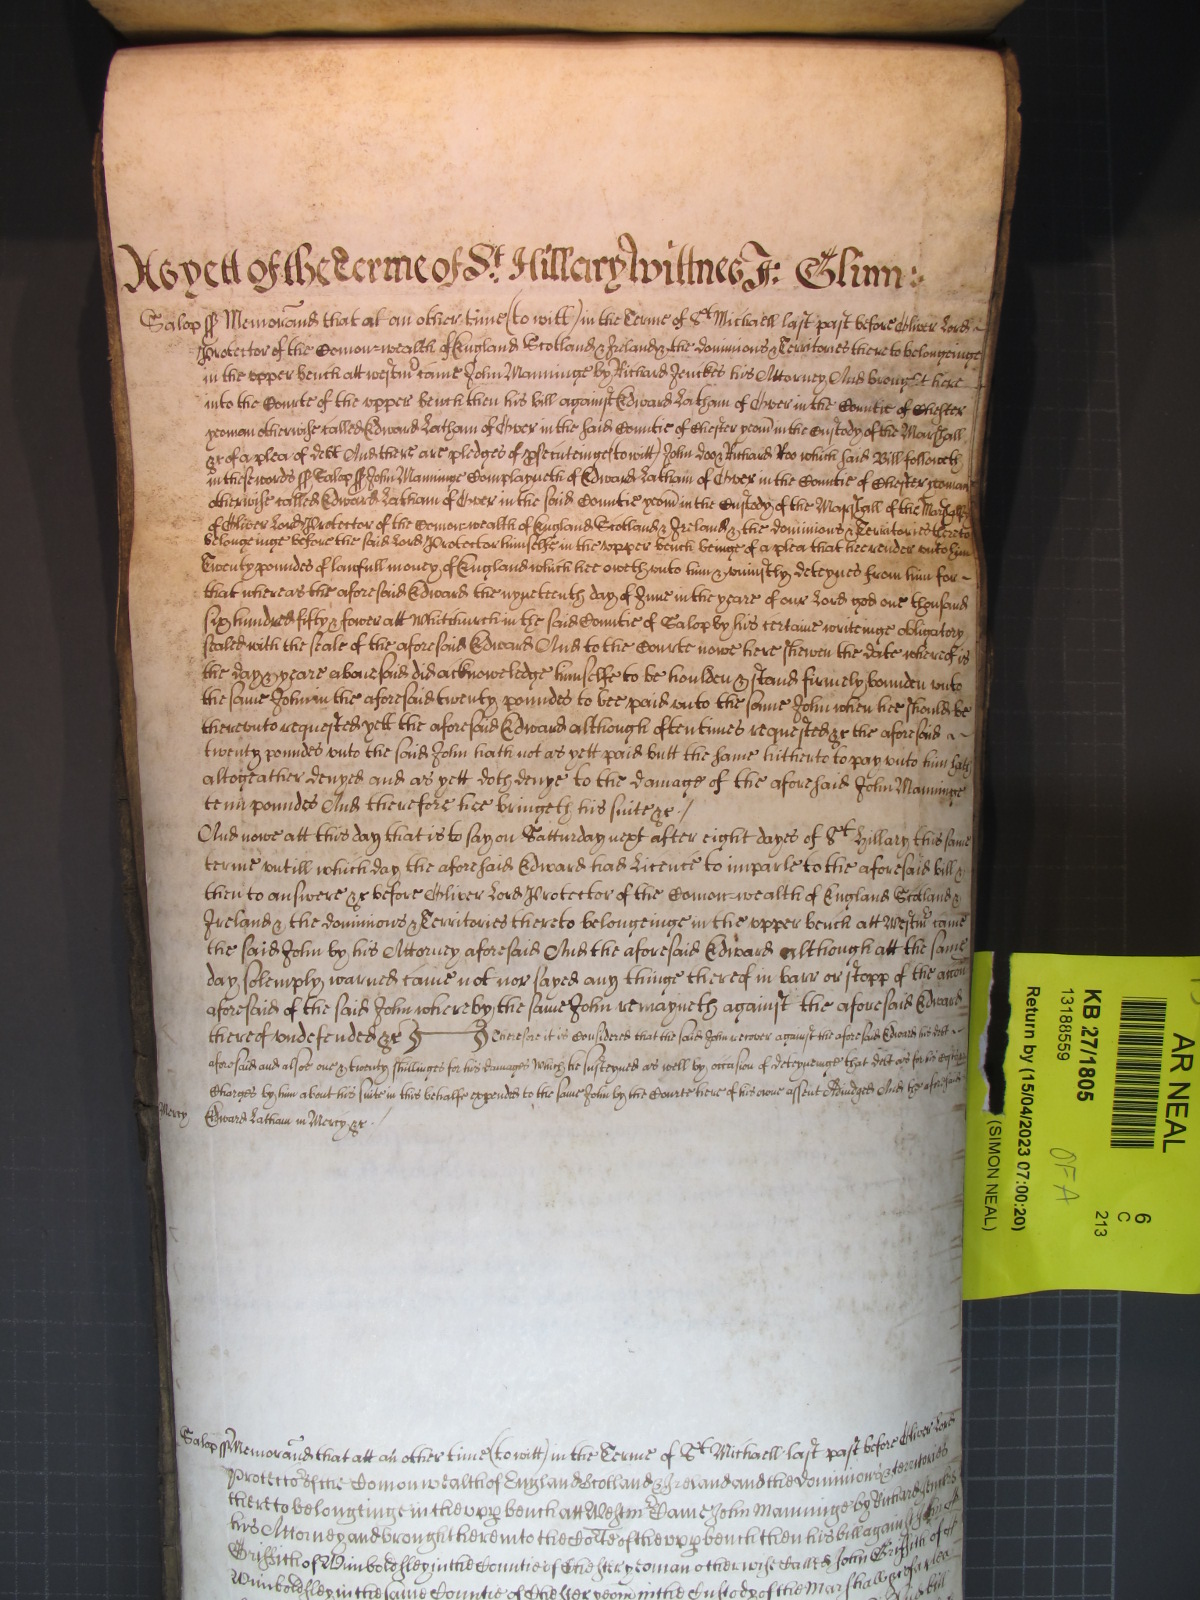 As yett of the Terme of St. Hillary Wittnes J: Glinn:
Salop ss Memorand that at an other time (to witt) in the Terme of St Michaell last past before Oliver Lord
Protector of the Comon=wealth of England Scotland & Ireland & the dominions & Territories thereto belongeinge
in the upper bench att westmr came John Manninge by Richard Jenckes his Attorney And brought here
into the Courte of the upper bench then his bill against Edward Latham of Over in the Countie of Chester
yeoman otherwise called Edward Latham of Over in the said Countie of Chester yeom in the Custody of the Marshall
&c of a plea of debt And there are pledges of psecuteinge (to witt) John doo & Richard Roo which said Bill followeth
in these words ss Salop ss John Manninge Complayneth of Edward Latham of Over in the Countie of Chester yeoman
otherwise called Edward Latham of Over in the said Countie yeom in the Custody of the Marshall of the
of Oliver Lord Protector of the Comon=wealth of England Scotland & Ireland & the dominions & Territories thereto
belongeinge before the said Lord Protector himselfe in the upper bench beinge of a plea that hee render unto him
Twenty poundes of lawfull money of England which hee oweth unto him & uniustly deteynes from him for
that whereas the aforesaid Edward the nyneteenth day of June in the yeare of our Lord god one thousand
six hundred fifty & fower att Whitchurch in the said Countie of Salop by his certaine writeinge obligatory
sealed with the seale of the aforesaid Edward And to the Courte nowe here shewen the date whereof is
the day & yeare abovesaid did acknowledge himselfe to be houlden & stand firmely bounden unto
the same John in the aforesaid twenty poundes to bee paid unto the same John when hee should be
thereunto requested yett the aforesaid Edward although oftentimes requested &c the aforesaid
twenty poundes unto the said John hath not as yett paid butt the same hitherto to pay unto him hath
altogeather denyed and as yett doth denye to the damage of the aforesaid John Manninge
tenn poundes And therefore hee bringeth his suite &c./
And nowe att this day that is to say on Satturday next after eight dayes of St Hillary this same
terme untill which day the aforesaid Edward had Licence to imparle to the aforesaid bill &
then to answere &c before Oliver Lord Protector of the Comon=wealth of England Scotland &
Ireland & the dominions & Territories thereto belongeinge in the upper bench att Westmr came
the said John by his Attorney aforesaid And the aforesaid Edward although att the same
day solemply warned came not nor sayed any thinge thereof in barr or stopp of the accon
aforesaid of the said John whereby the same John remayneth against the aforesaid Edward
thereof undefended &c Therefore it is Considered that the said John recover against the aforesaid Edward his debt
aforesaid and alsoe one & twenty shillinges for his damages which he susteyned as well by occasion of deteyneinge that debt as for his
Charges by him about his suite in this behalfe expended to the same John by the Courte here of his owne assent Adiudged And the aforesaid
Mercy
Edward Latham in Mercy &c./
Salop ss Memorand that att an other time (to witt) in the Terme of St Michaell last past before Oliver Lord
Protector of the Comonwealth of England Scotland & Ireland and the dominions & territories
thereto belongeinge in the upp bench att Westmr Came John Manninge by Richard Jenckes
his Attorney and brought here into the Corte of the upp bench then his bill against John
Griffith of Wimboldsley in the Countie of Chester yeoman otherwise Called John Griffith of
Wimboldsley in the same Countie of Chester yeom in the Custody of the Marshall &c of a plea
AR NEAL
6
C
213
KB 27/1805
13188559
OFA
Return by (15/04/2023 07:00:20)
(SIMON NEAL)